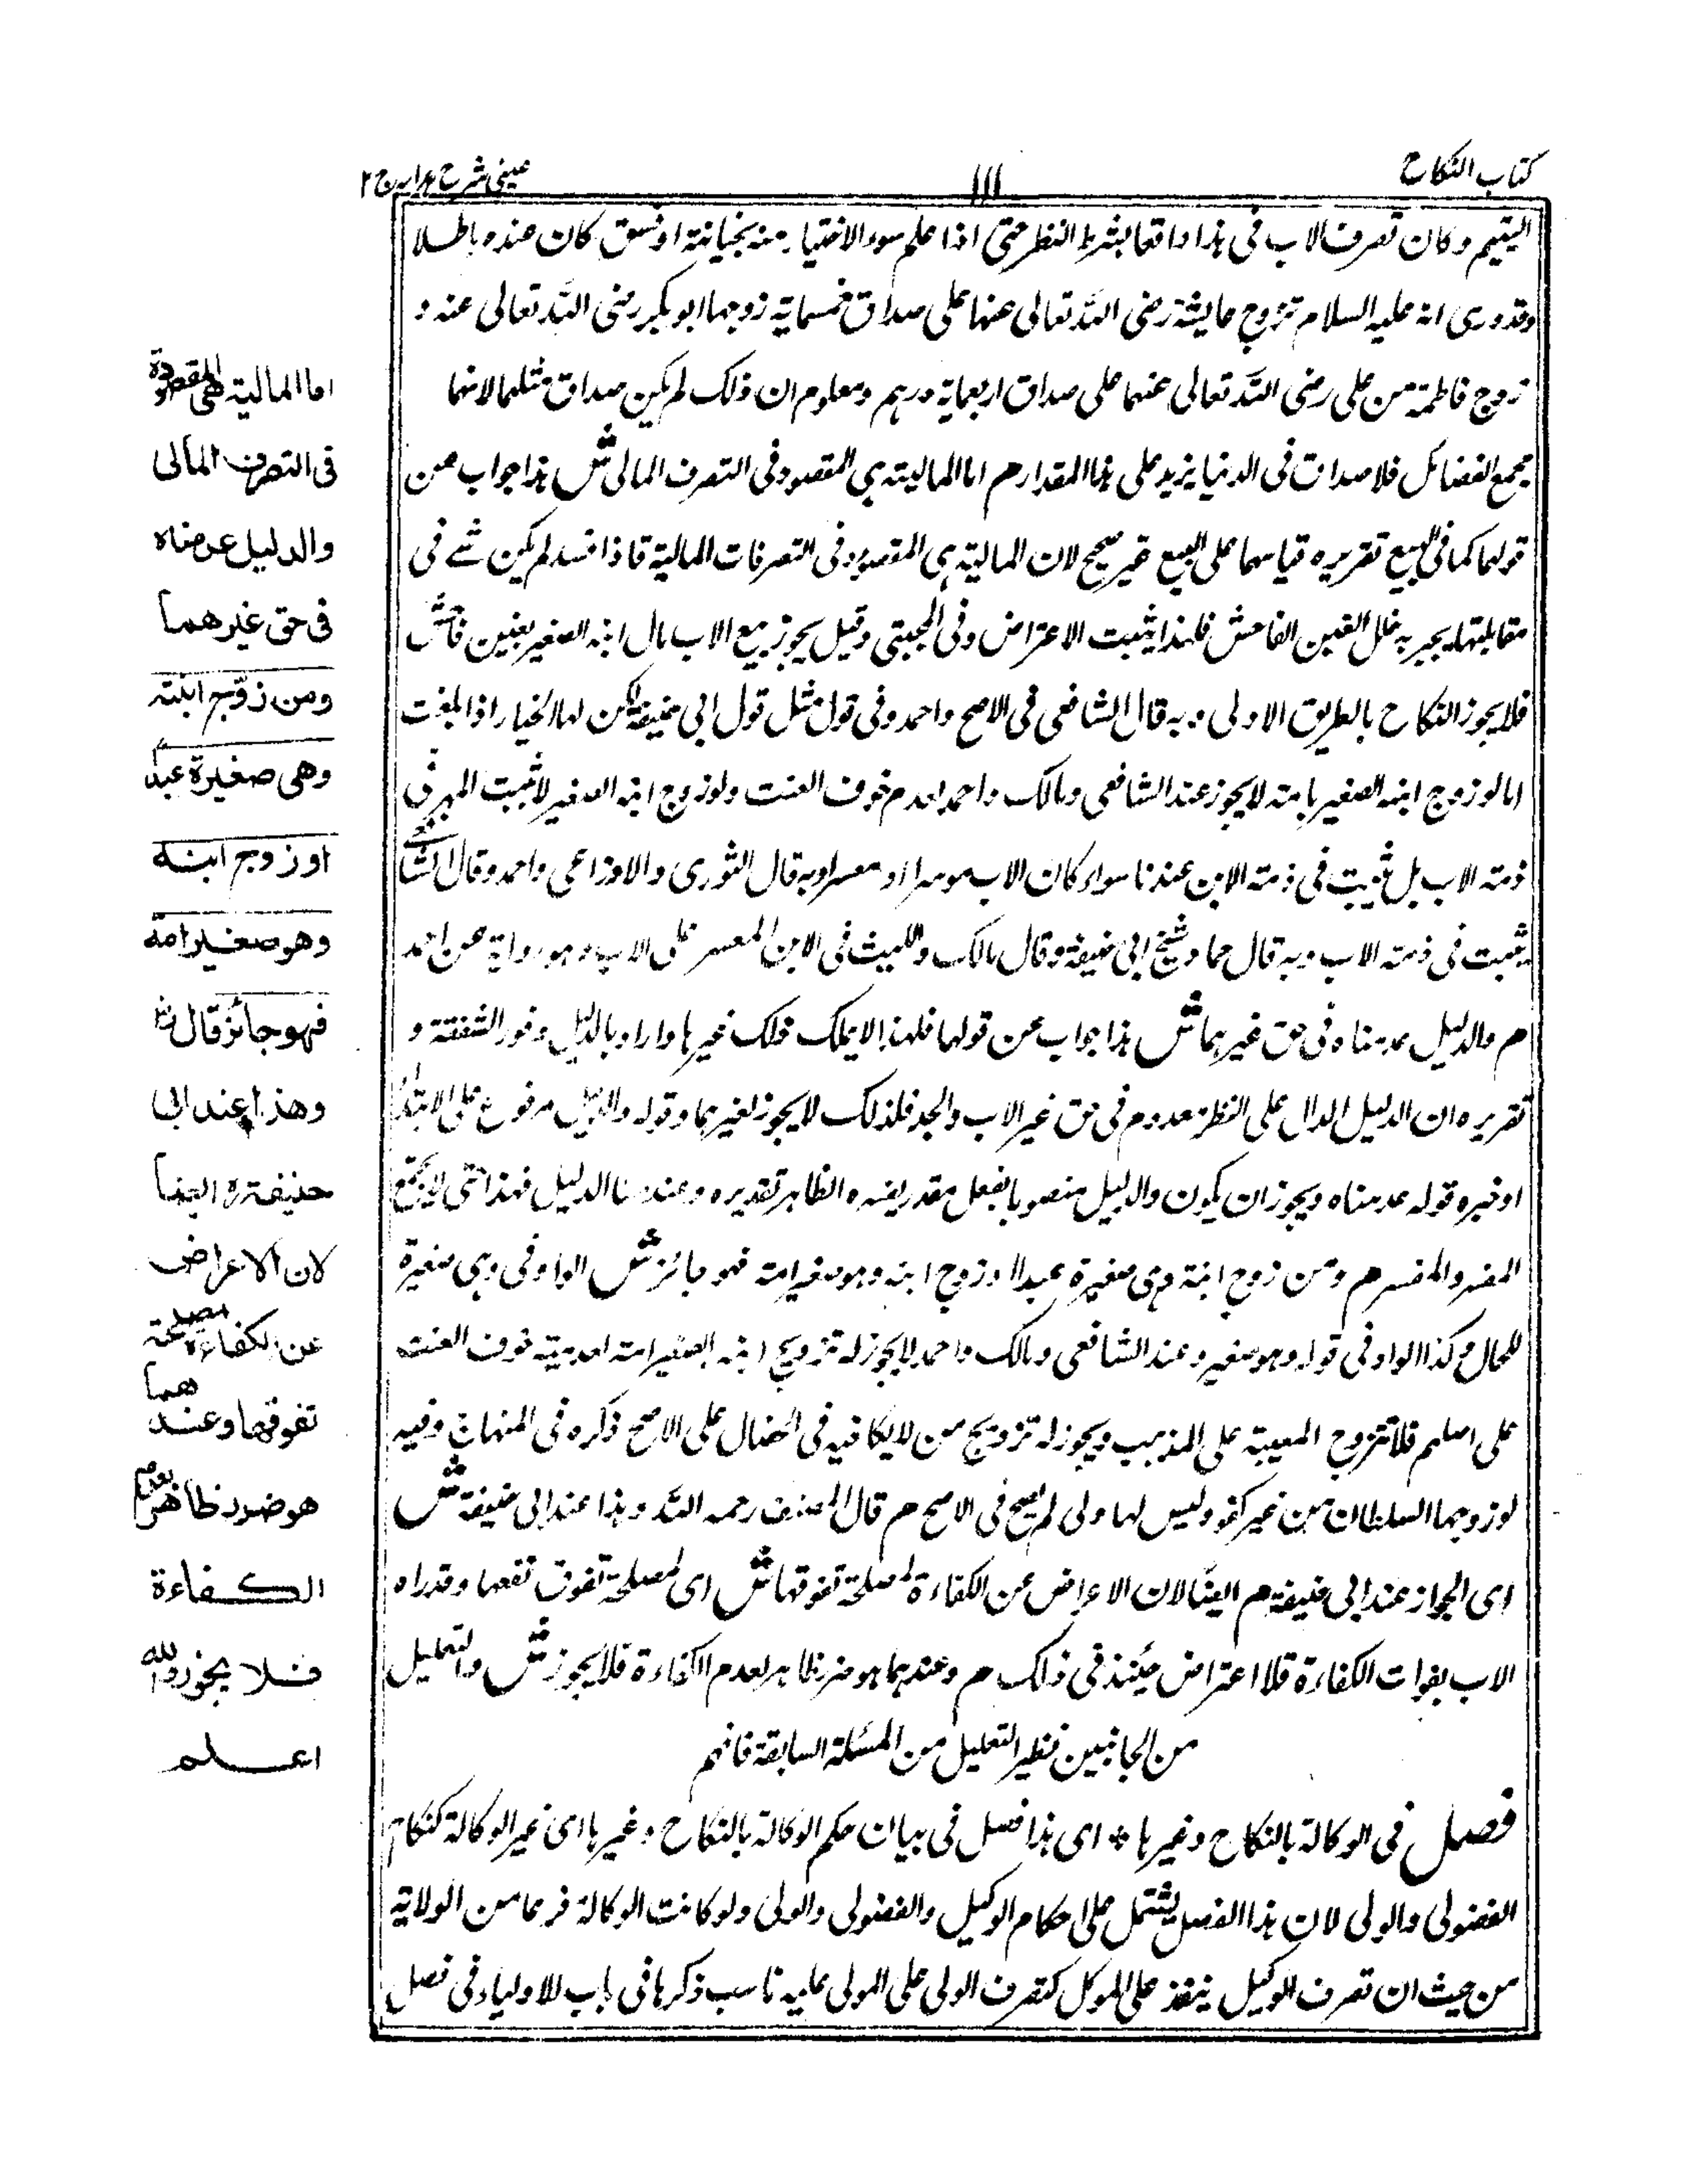 كتاب النكاح
١١١
عينى شرح هدايه ج ٢
اليتيم وكان تصرف الاب فى هذا واقعا بشرط النظر حتى اذا علم سوء الاختيار منه بخيانة او فسق كان عنده باطلا
وقد روى انه عليه السلام تزوج عايشة رضى الله تعالى عنها على صداق خمسماية زوجها ابو بكر رضى الله تعالى عنه و
زوج فاطمة من على رضى الله تعالى عنهما على صداق اربعماية درهم ومعلوم ان ذلك لم يكن صداق مثلهما لانهما
مجمع الفضائل فلا صداق فى الدنيا يزيد على هذا المقدار م اما المالية هى المقصود فى التصرف المالى ش هذا جواب عن
قولهما كما فى البيع تقريره قياسهما على البيع غير صحيح لان المالية هى المقصود فى التصرفات المالية فاذا فسد لم يكن شے فى
مقابلتها يجبر به خلل الغبن الفاحش فلهذا يثبت الاعتراض وفى المجتبى وقيل يجوز بيع الاب مال ابنه الصغير بغبن فاحش
فلا يجوز النكاح بالطريق الاولى وبه قال الشافعى فى الاصح واحمد وفى قول مثل قول ابى حنيفة لكن لها الخيار اذا بلغت
اما لو زوج ابنه الصغير بامته لا يجوز عند الشافعى ومالك واحمد لعدم خوف العنت ولو زوج ابنه الصغير لا يثبت المهر فى
ذمته الاب بل يثبت فى ذمته الابن عندنا سواء كان الاب موسرا او معسرا وبه قال الثورى والاوزاعى واحمد وقال الشافعى
يثبت فى ذمته الاب وبه قال حماد شيخ ابى حنيفة وقال مالك والليث فى الابن المعسر على الاب وهو رواية عن احمد
م والدليل عدمناه فى حق غيرهما ش هذا جواب عن قولهما فلهذا لا يملك ذلك غيرهما واراد بالدليل وفور الشفقة و
تقريره ان الدليل الدال على النظر معدوم فى حق غير الاب والجد فلذلك لا يجوز لغيرهما وقوله والدليل مرفوع على الابتداء
او خبره قوله عدمناه ويجوز ان يكون والدليل منصوبا بفعل مقدر يفسره الظاهر تقديره وعدمنا الدليل فهذا حتى لا يجتمع
المفسر والمفسر م ومن زوج ابنة وهى صغيرة عبدا او زوج ابنه وهو صغير امته فهو جائز ش الواو فى وهى صغيرة
للحال وكذا الواو فى قوله وهو صغير وعند الشافعى ومالك واحمد لا يجوز له تزويج ابنه الصغير امته لعدميته خوف العنت
على اصلهم فلا تتزوج المعيبة على المذهب ويجوز له تزويج من لا يكافيه فى الخصال على الاصح ذكره فى المنهاج وفيه
لو زوجها السلطان من غير كفو وليس لها ولى لم يصح فى الاصح م قال المصنف رحمه الله وهذا عند ابى حنيفة ش
اى الجواز عند ابى حنيفة م ايضًا لان الاعراض عن الكفاءة لمصلحة تفوقها ش اى لمصلحة تفوق نفعها وقد راه
الاب بفوات الكفاءة فلا اعتراض حينئذ فى ذلك م وعندهما هو ضرر ظاهر لعدم الكفاءة فلا يجوز ش والتعليل
من الجانبين نظير التعليل من المسئلة السابقة فافهم
فصل فى الوكالة بالنكاح وغيرها * اى هذا فصل فى بيان حكم الوكالة بالنكاح وغيرها اى غير الوكالة كنكاح
الفضولى والولى لان هذا الفصل يشتمل على احكام الوكيل والفضولى والولى ولو كانت الوكالة فرعا من الولاية
من حيث ان تصرف الوكيل ينفذ على الموكل كتصرف الولى على المولى عليه ناسب ذكرها فى باب للاولياء فى فصل
اما المالية هى المقصودة
فى التصرف المالى
والدليل عدمناه
فى حق غيرهما
ومن زوّج ابنته
وهى صغيرة عبدا
او زوج ابنه
وهو صغير امة
فهو جائز قال رض
وهذا عند ابى
حنيفة رہ ايضا
لان الاعراض
عن الكفاءة لمصلحة
تفوقها وعندهما
هو ضرر ظاهر لعدم
الكفاءة
فلا يجوز والله
اعلم